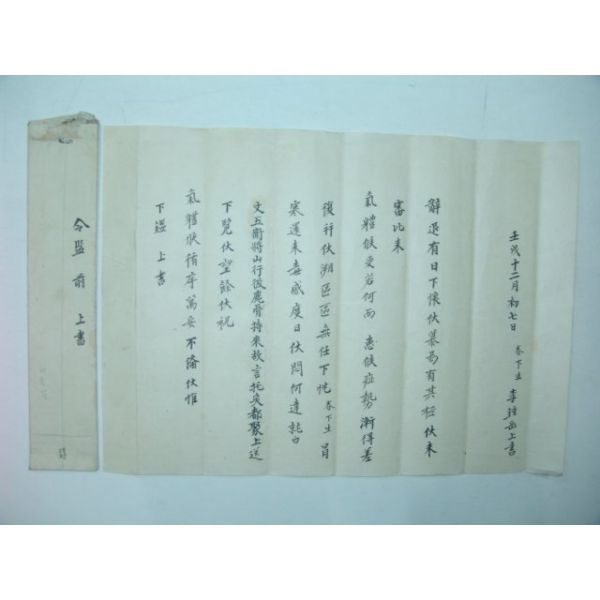 壬戌十二月初七日 眷下生 李鍾岳上書
辭退有日下懷伏慕曷有其極伏未
審比來
氣體候更若何而 患候症勢 漸得差
復拜伏溯區區無任下忱 眷下生 冒
寒還來毒感度日伏悶何達就白
文五衛將山行後鹿骨持來故言托矣都聚上送
下覽伏望餘伏祝
氣體候循序萬安 不備伏惟
下鑑 上書
令監前 上書